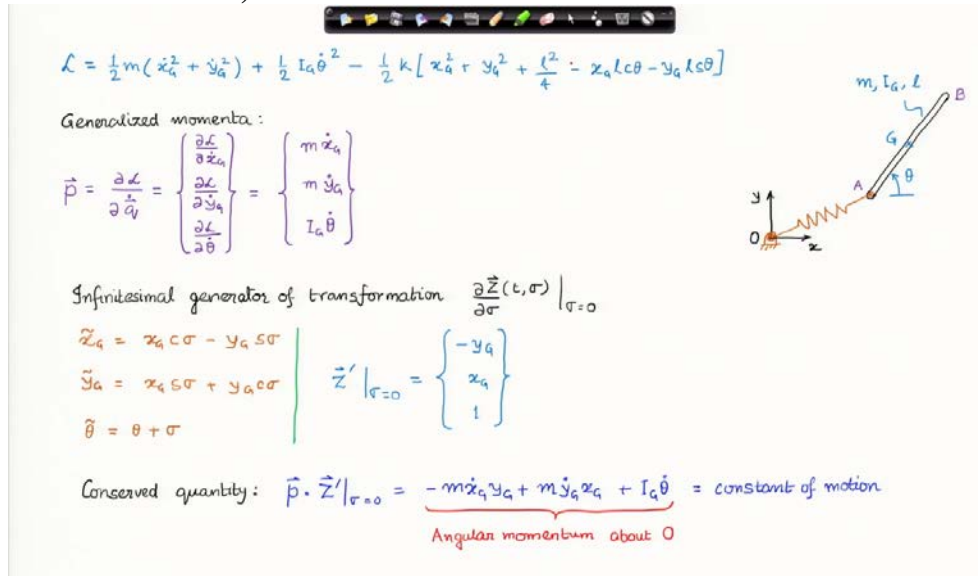 ℒ = 1/2 m(ẋ_G² + ẏ_G²) + 1/2 I_G θ̇² − 1/2 k[x_G² + y_G² + l²/4 − x_G lcθ − y_G lsθ]
m, I_G, l
B
G
θ
A
y
O
x
Generalized momenta :
p⃗ = ∂ℒ/∂q̇⃗ = { ∂ℒ/∂ẋ_G ∂ℒ/∂ẏ_G ∂ℒ/∂θ̇ } = { mẋ_G mẏ_G I_G θ̇ }
Infinitesimal generator of transformation ∂Z⃗/∂σ (t,σ) |σ=0
x̃_G = x_G cσ − y_G sσ
ỹ_G = x_G sσ + y_G cσ
θ̃ = θ + σ
Z⃗'|σ=0 = { −y_G x_G 1 }
Conserved quantity : p⃗ · Z⃗'|σ=0 = −mẋ_G y_G + mẏ_G x_G + I_G θ̇ = constant of motion
Angular momentum about O